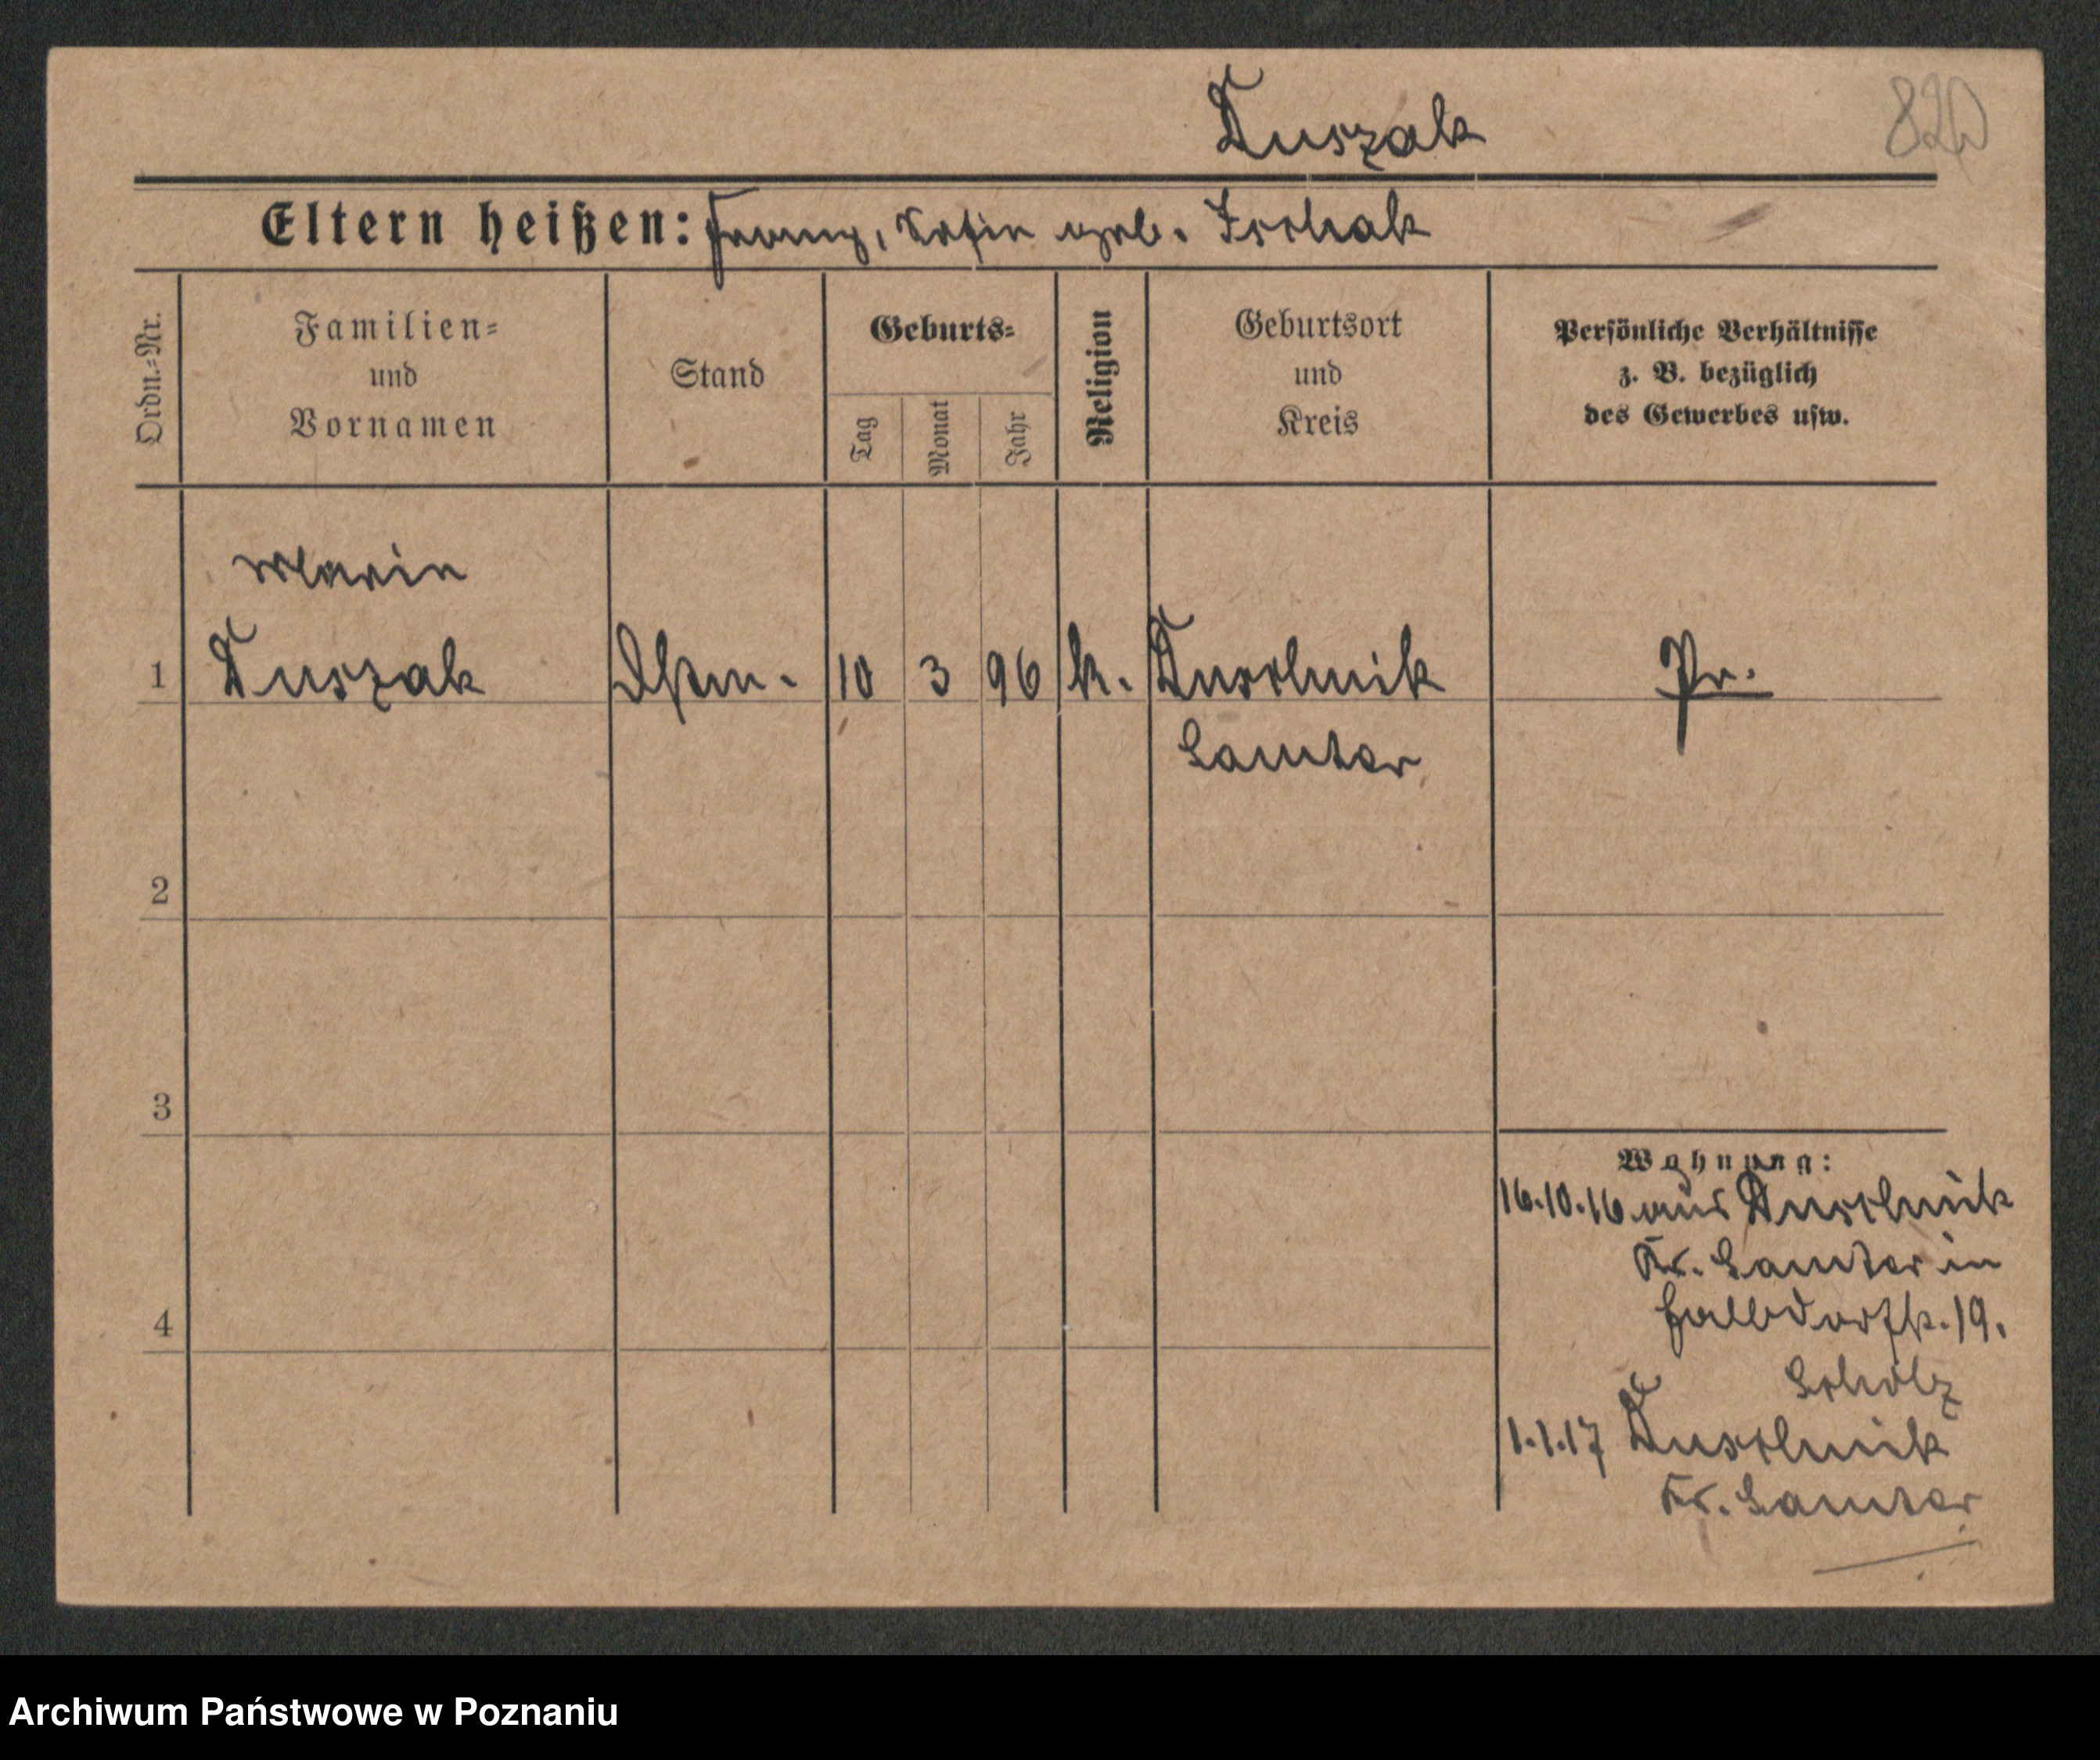 Duszak
Eltern heißen: Franz, Sofie geb. Ischak
Ordn.-Nr.
Familien-
und
Vornamen
Stand
Geburts-
Tag
Monat
Jahr
Religion
Geburtsort
und
Kreis
Persönliche Verhältnisse
z. B. bezüglich
des Gewerbes usw.
Marie
1 Duszak Dstm. 10 3 96 k. Duschnik Pr.
Samter
2
3
Wohnung:
16.10.16 aus Duschnik
Kr. Samter in
4 Halbdorfstr. 19.
Scholz
1.1.17 Duschnik
Kr. Samter
Archiwum Państwowe w Poznaniu